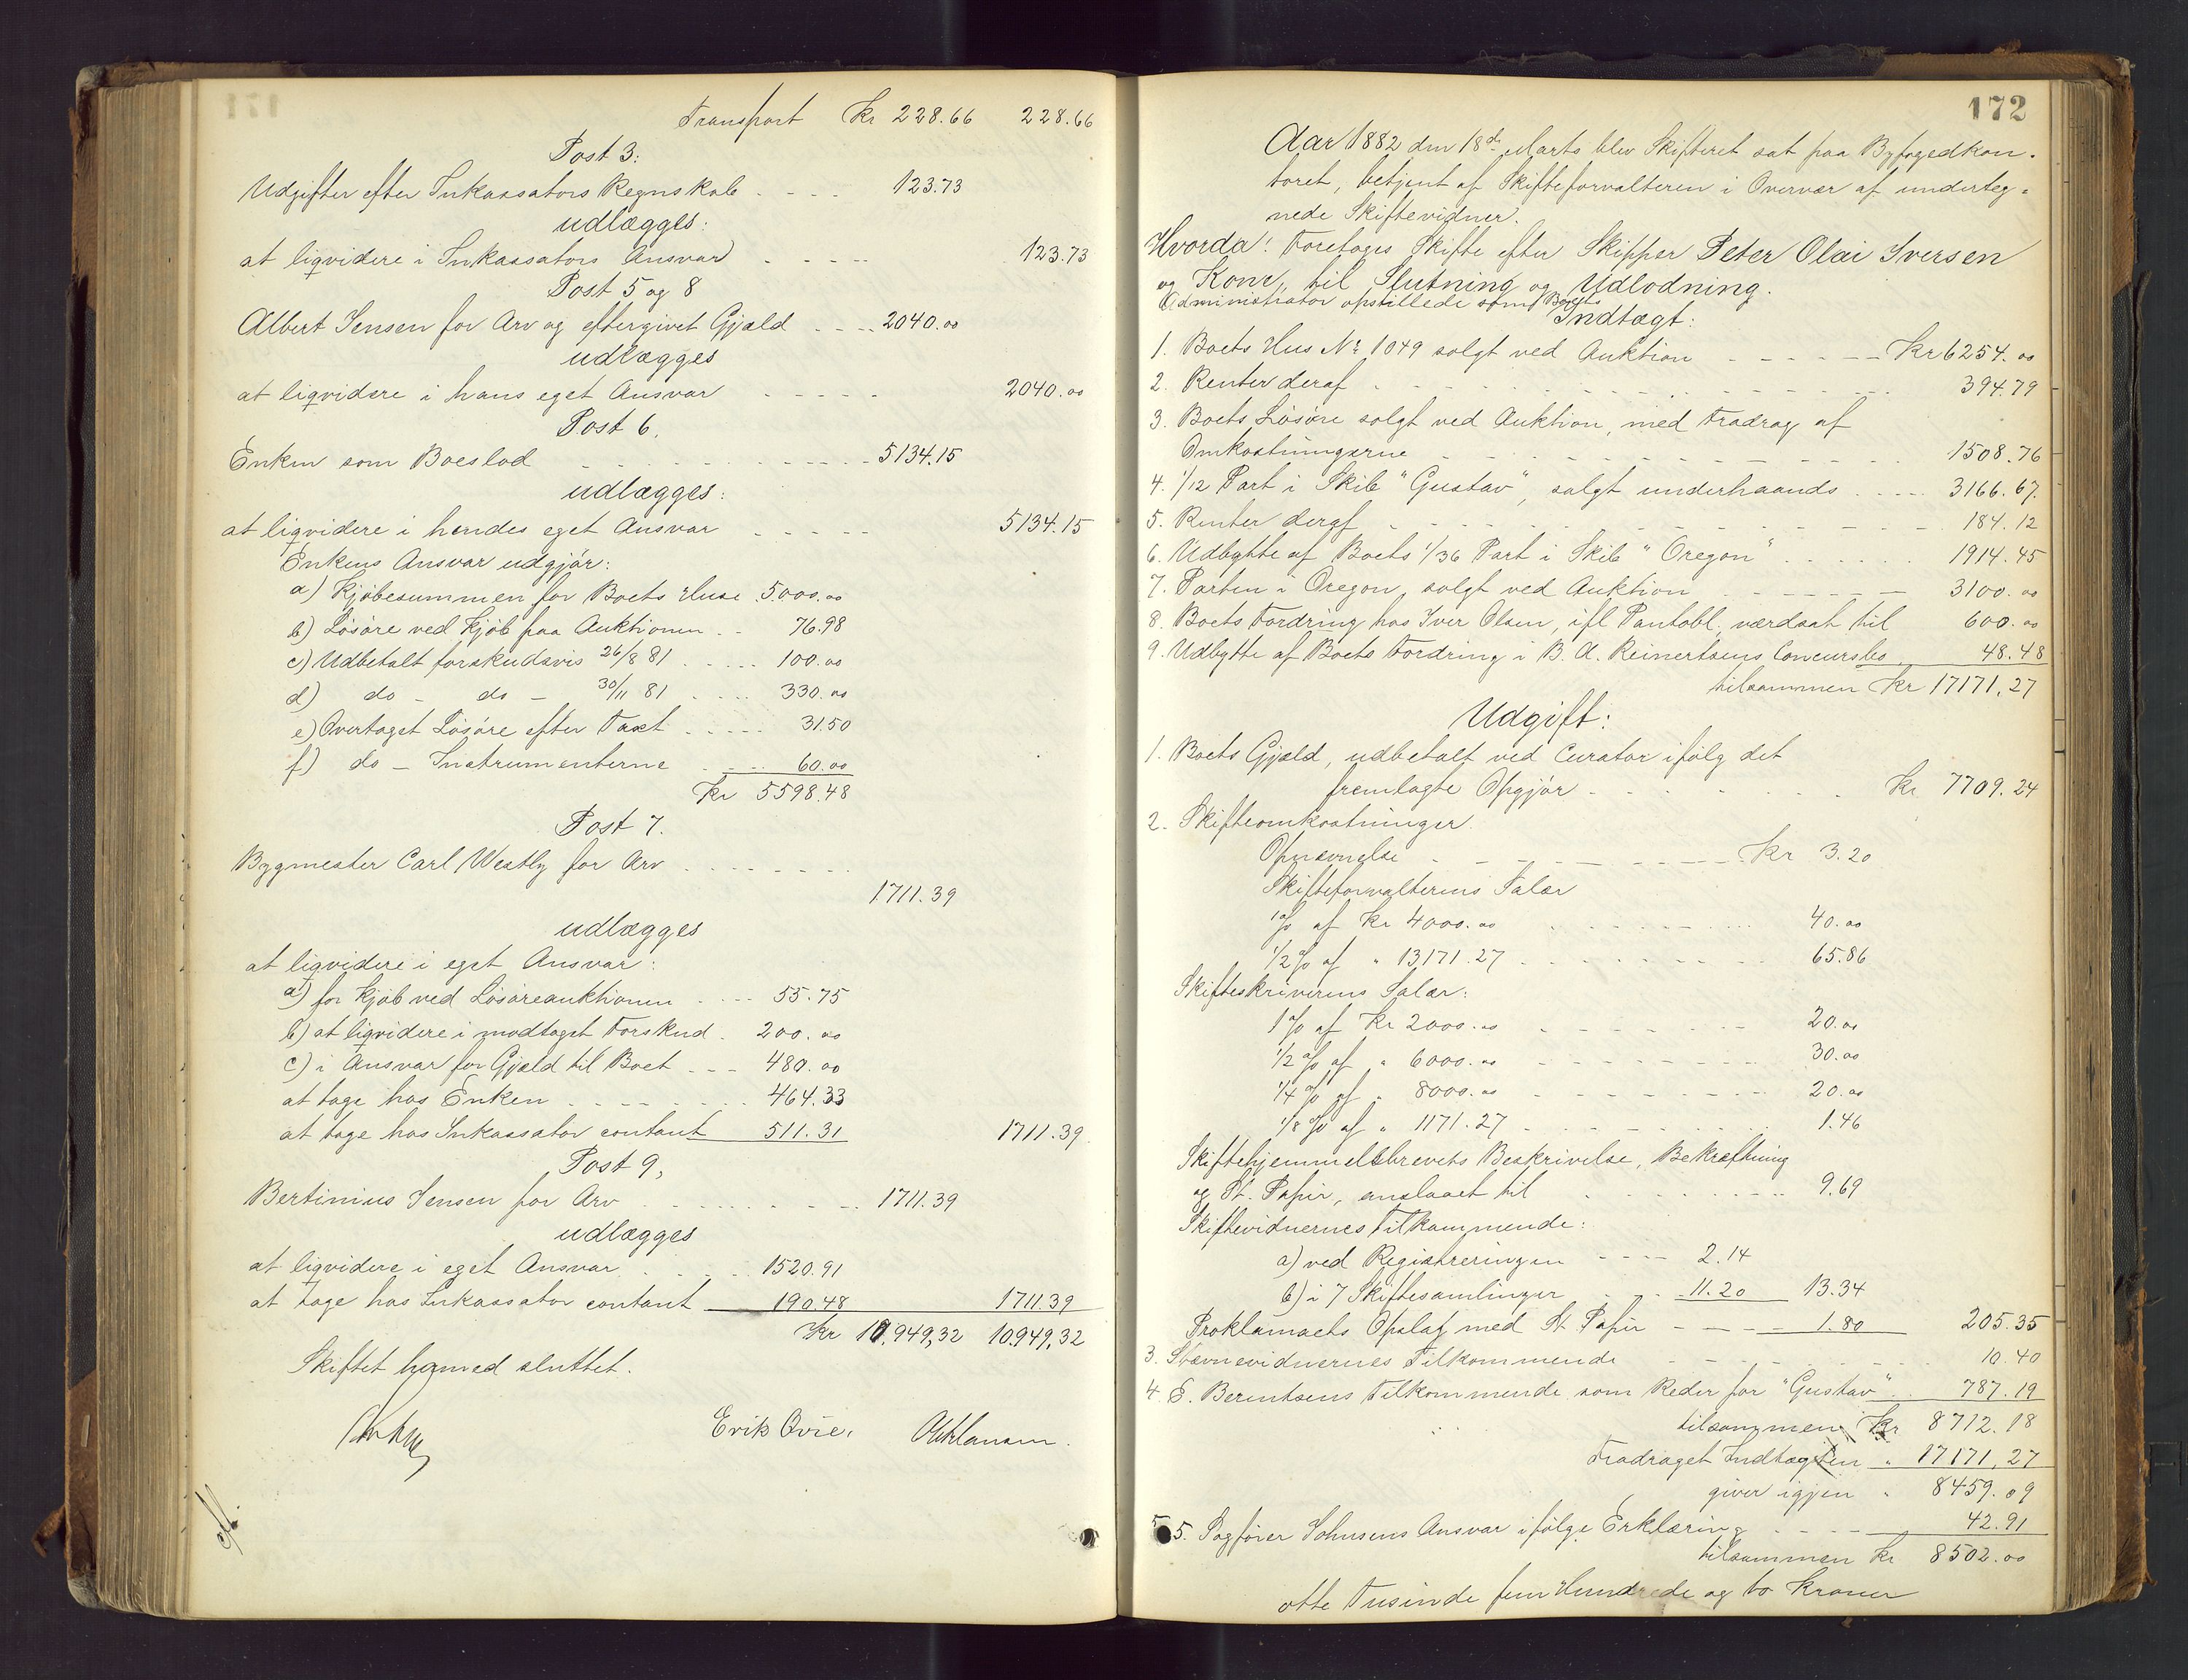 Transport Kr 228.66 228.66
Post 3:
Udgifter efter Inkassators Regnskab 123.73
udlægges:
at liqvidere i Inkassators Ansvar 123.73
Post 5 og 8
Albert Jensen for Arv og eftergivet Gjæld 2040.00
udlægges
at liqvidere i hans eget Ansvar 2040.00
Post 6.
Enken som Boeslod 5134.15
udlægges:
at liqvidere i hendes eget Ansvar 5134.15
Enkens Ansvar udgjør:
a) Kjøbesummen for Boets Huse 5000.00
b) Løsøre ved Kjøb paa Auktionen 76.98
c) Udbetalt forskudsvis 26/8 81 100.00
d) do - do - 30/11 81 330.00
e) Overtaget Løsøre efter Taxt 31.50
f) do - Instrumenterne 60.00
Kr 5598.48
Post 7.
Bygmester Carl Westly for Arv
1711.39
udlægges
at liqvidere i eget Ansvar:
a) for Kjøb ved Løsøreauktionen 55.75
b) at liqvidere i modtaget Forskud 200.00
c) i Ansvar for Gjæld til Boet 480.00
at tage hos Enken 464.33
at tage hos Inkassator contant 511.31 1711.39
Post 9,
Bertinius Jensen for Arv 1711.39
udlægges
at liqvidere i eget Ansvar 1520.91
at tage hos Inkassator contant 190.48 1711.39
Kr 10.949,32 10949,32
Skiftet hermed sluttet.
Erik Qvie.
172
Aar 1882 den 18de Marts blev Skifteret sat paa Byfogedkon-
toret, betjent af Skifteforvalteren i Overvær af underteg-
nede Skiftevidner.
Hvorda: Foretoges Skifte efter Skipper Peter Olai Iversen
og Kone, til Slutning og Udlodning.
Administrator opstillede som Boets
Indtægt:
1. Boets Hus No 1049 solgt ved Auktion Kr 6254.00
2. Renter deraf 394.79
3. Boets Løsøre solgt ved Auktion, med Fradrag af
Omkostningerne 1508.76
4. 1/12 Part i Skib "Gustav", solgt underhaands 3166.67.
5. Renter deraf 184.12
6. Udbytte af Boets 1/36 Part i Skib "Oregon" 1914.45
7. Parten i Oregon, solgt ved Auktion 3100.00
8. Boets Fordring hos Iver Olsen, ifl Pantobl. værdsat til 600.00
9. Udbytte af Boets Fordring i B. A. Reinertsens Concursbo 48.48
tilsammen Kr 17171,27
Udgift:
1. Boets Gjæld, udbetalt ved Curator ifølg det
fremlagte Opgjør Kr 7709.24
2. Skifteomkostninger.
Opnævnelse Kr 3.20
Skifteforvalterens Salær
1% af Kr 4000.00 40.00
1/2% af " 13171.27 65.86
Skifteskriverens Salær:
1% af Kr 2000.00 20.00
1/2% af " 6000.00 30.00
1/4% af " 8000.00 20.00
1/8% af " 1171.27 1.46
Skiftehjemmelsbrevets Beskrivelse, Bekræftning
og St. Papir, anslaaet til 9.69
Skiftevidnernes Tilkommende:
a) ved Registreringen 2.14
b) i 7 Skiftesamlinger 11.20 13.34
Proklamaets Opslag med St. Papir 1.80 205.35
3. Stævnevidnernes Tilkommende 10.40
4. E. Berentsens Tilkommende som Reder for "Gustav" 787.19
tilsammen Kr 8712.18
Fradraget Indtægten " 17171,27
giver igjen " 8459.09
5. Sagfører Johnsens Ansvar ifølge Erklæring 42.91
tilsammen Kr 8502.00
otte Tusinde fem Hundrede og to Kroner